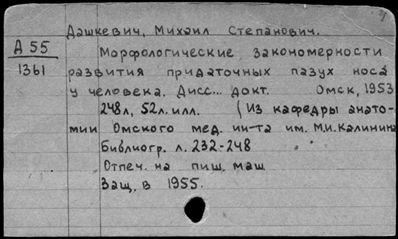 Дашкевич, Михаил Степанович.
А 55
1361
Морфологические закономерности
развития придаточных пазух носа
у человека. Дисс... докт. Омск, 1953
248л, 52л. илл. (Из кафедры анато-
мии Омского мед. ин-та им. М.И. Калинина
Библиогр. л. 232-248
Отпеч. на пиш. маш
Защ. в 1955.